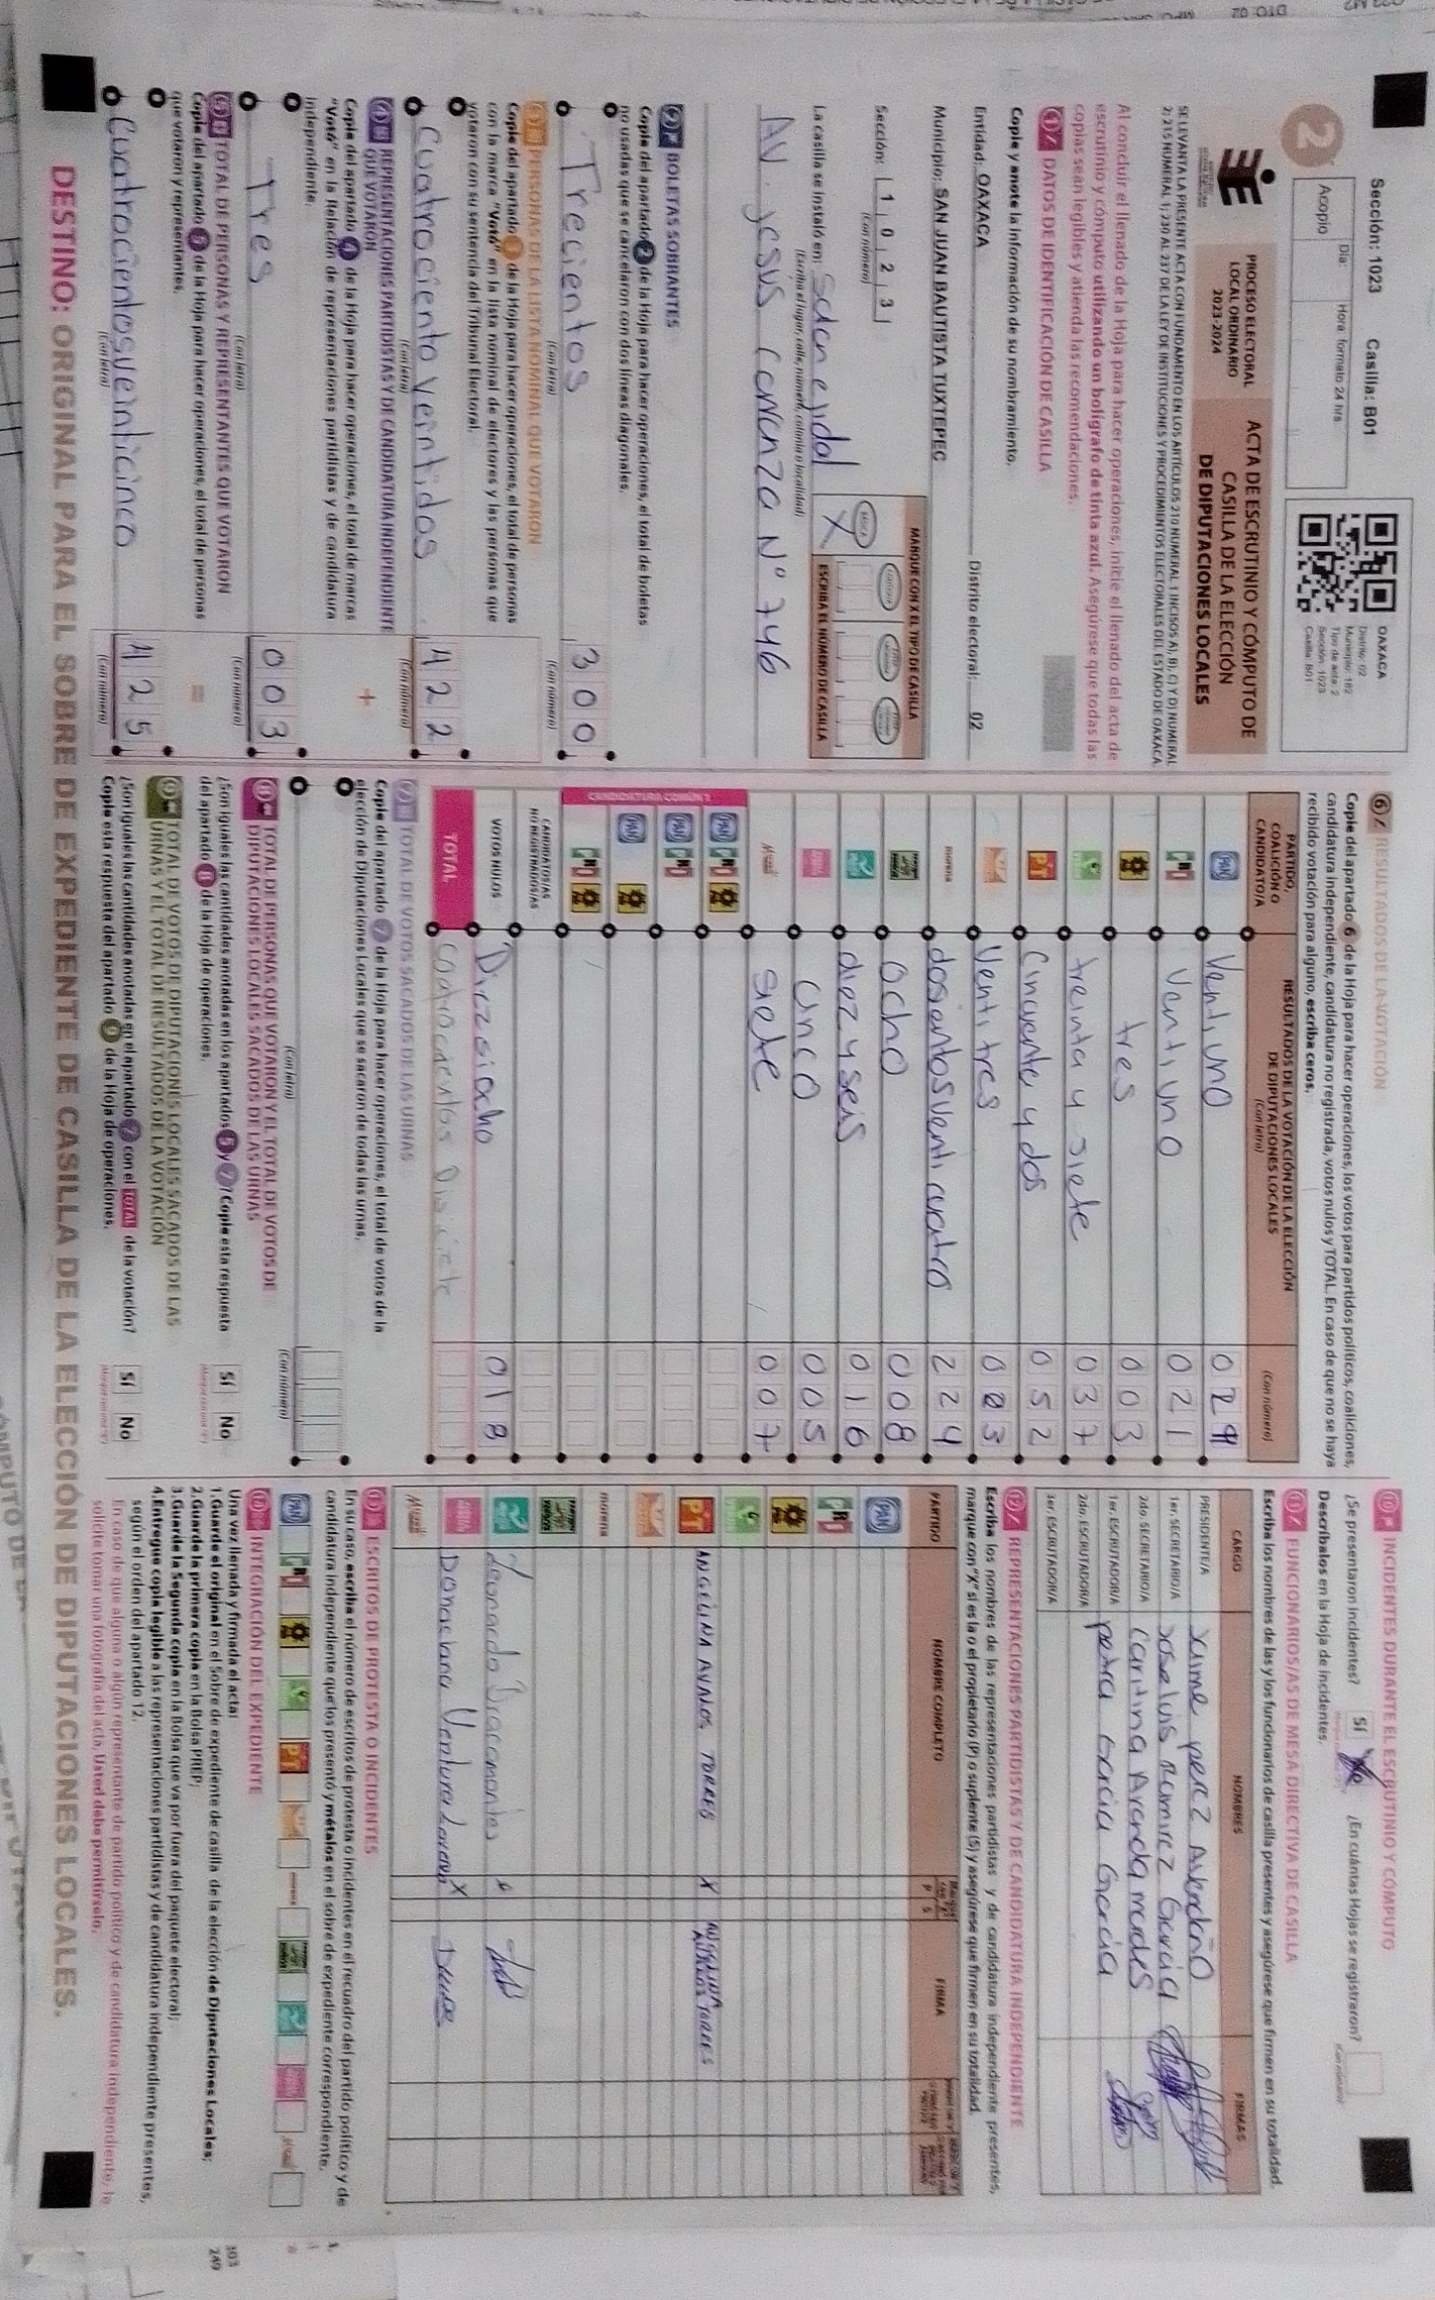 Sección: 1023 Casilla: B01
Día: Hora: formato 24 hrs
Acopio
2
OAXACA
Distrito: 02
Municipio: 182
Tipo de acta: 2
Sección: 1023
Casilla: B01
PROCESO ELECTORAL
LOCAL ORDINARIO
2023-2024
ACTA DE ESCRUTINIO Y CÓMPUTO DE
CASILLA DE LA ELECCIÓN
DE DIPUTACIONES LOCALES
SE LEVANTA LA PRESENTE ACTA CON FUNDAMENTO EN LOS ARTÍCULOS 210 NUMERAL 1 INCISOS A), B), C) Y D) NUMERAL
2; 215 NUMERAL 1; 230 AL 237 DE LA LEY DE INSTITUCIONES Y PROCEDIMIENTOS ELECTORALES DEL ESTADO DE OAXACA.
Al concluir el llenado de la Hoja para hacer operaciones, inicie el llenado del acta de
escrutinio y cómputo utilizando un bolígrafo de tinta azul. Asegúrese que todas las
copias sean legibles y atienda las recomendaciones.
1 DATOS DE IDENTIFICACIÓN DE CASILLA
Copie y anote la información de su nombramiento.
Entidad: OAXACA Distrito electoral: 02
Municipio: SAN JUAN BAUTISTA TUXTEPEC
Sección: 1 0 2 3
(Con número)
MARQUE CON X EL TIPO DE CASILLA
X
ESCRIBA EL NÚMERO DE CASILLA
La casilla se instaló en: Salon ejidal
(Escriba el lugar, calle, número, colonia o localidad)
AV. jesus Carranza N° 746
2 BOLETAS SOBRANTES
Copie del apartado 2 de la Hoja para hacer operaciones, el total de boletas
no usadas que se cancelaron con dos líneas diagonales.
Trecientos 300
(Con letra) (Con número)
3 PERSONAS DE LA LISTA NOMINAL QUE VOTARON
Copie del apartado 3 de la Hoja para hacer operaciones, el total de personas
con la marca "Votó" en la lista nominal de electores y las personas que
votaron con su sentencia del Tribunal Electoral.
Cuatrociento veintidos 422
(Con letra) (Con número)
4 REPRESENTACIONES PARTIDISTAS Y DE CANDIDATURA INDEPENDIENTE
QUE VOTARON
Copie del apartado 4 de la Hoja para hacer operaciones, el total de marcas
"Votó" en la Relación de representaciones partidistas y de candidatura
independiente.
Tres 003
(Con letra) (Con número)
5 TOTAL DE PERSONAS Y REPRESENTANTES QUE VOTARON
Copie del apartado 5 de la Hoja para hacer operaciones, el total de personas
que votaron y representantes.
Cuatrocientosveinticinco 425
(Con letra) (Con número)
6 RESULTADOS DE LA VOTACIÓN
Copie del apartado 6 de la Hoja para hacer operaciones, los votos para partidos políticos, coaliciones,
candidatura independiente, candidatura no registrada, votos nulos y TOTAL. En caso de que no se haya
recibido votación para alguno, escriba ceros.
PARTIDO, COALICIÓN O CANDIDATO/A
RESULTADOS DE LA VOTACIÓN DE LA ELECCIÓN
DE DIPUTACIONES LOCALES
(Con letra) (Con número)
PAN Ventiuno
PRI Ventiuno 021
tres 003
treinta y siete 037
PT Cincuente y dos 052
Ventitres
morena dosientosventicuatro 224
ocho 008
diez y seis 016
005
siete 007
CANDIDATURA COMÚN 1
PAN PRI
PAN PRI
PAN
PRI
CANDIDATOS/AS
NO REGISTRADOS/AS
VOTOS NULOS Diezsiocho 018
TOTAL
7 TOTAL DE VOTOS SACADOS DE LAS URNAS
Copie del apartado 7 de la Hoja para hacer operaciones, el total de votos de la
elección de Diputaciones Locales que se sacaron de todas las urnas.
(Con letra) (Con número)
8 TOTAL DE PERSONAS QUE VOTARON Y EL TOTAL DE VOTOS DE
DIPUTACIONES LOCALES SACADOS DE LAS URNAS
¿Son iguales las cantidades anotadas en los apartados 5 y 7? Copie esta respuesta
del apartado 8 de la Hoja de operaciones. Sí No
9 TOTAL DE VOTOS DE DIPUTACIONES LOCALES SACADOS DE LAS
URNAS Y EL TOTAL DE RESULTADOS DE LA VOTACIÓN
¿Son iguales las cantidades anotadas en el apartado 7 con el TOTAL de la votación?
Copie esta respuesta del apartado 9 de la Hoja de operaciones. Sí No
10 INCIDENTES DURANTE EL ESCRUTINIO Y CÓMPUTO
¿Se presentaron incidentes? Sí No ¿En cuántas Hojas se registraron?
Descríbalos en la Hoja de incidentes.
11 FUNCIONARIOS/AS DE MESA DIRECTIVA DE CASILLA
Escriba los nombres de las y los funcionarios de casilla presentes y asegúrese que firmen en su totalidad.
CARGO NOMBRES FIRMAS
PRESIDENTE/A perez Avendaño
1er. SECRETARIO/A Joseluis Ramirez Garcia
2do. SECRETARIO/A
1er. ESCRUTADOR/A petra Garcia Garcia
2do. ESCRUTADOR/A
3er. ESCRUTADOR/A
12 REPRESENTACIONES PARTIDISTAS Y DE CANDIDATURA INDEPENDIENTE
Escriba los nombres de las representaciones partidistas y de candidatura independiente presentes,
marque con "X" si es la o el propietario (P) o suplente (S) y asegúrese que firmen en su totalidad.
PARTIDO NOMBRE COMPLETO P S FIRMA
PAN
PRI
PT ANGELINA AVALOS TORRES X
morena
Leonardo Bracamontes
Donaciana Ventura X
13 ESCRITOS DE PROTESTA O INCIDENTES
En su caso, escriba el número de escritos de protesta o incidentes en el recuadro del partido político y de
candidatura independiente que los presentó y métalos en el sobre de expediente correspondiente.
14 INTEGRACIÓN DEL EXPEDIENTE
Una vez llenada y firmada el acta:
1. Guarde el original en el Sobre de expediente de casilla de la elección de Diputaciones Locales;
2. Guarde la primera copia en la Bolsa PREP;
3. Guarde la Segunda copia en la Bolsa que va por fuera del paquete electoral;
4. Entregue copia legible a las representaciones partidistas y de candidatura independiente presentes,
según el orden del apartado 12.
En caso de que alguna o algún representante de partido político y de candidatura independiente, le
solicite tomar una fotografía del acta, Usted debe permitírselo.
DESTINO: ORIGINAL PARA EL SOBRE DE EXPEDIENTE DE CASILLA DE LA ELECCIÓN DE DIPUTACIONES LOCALES.